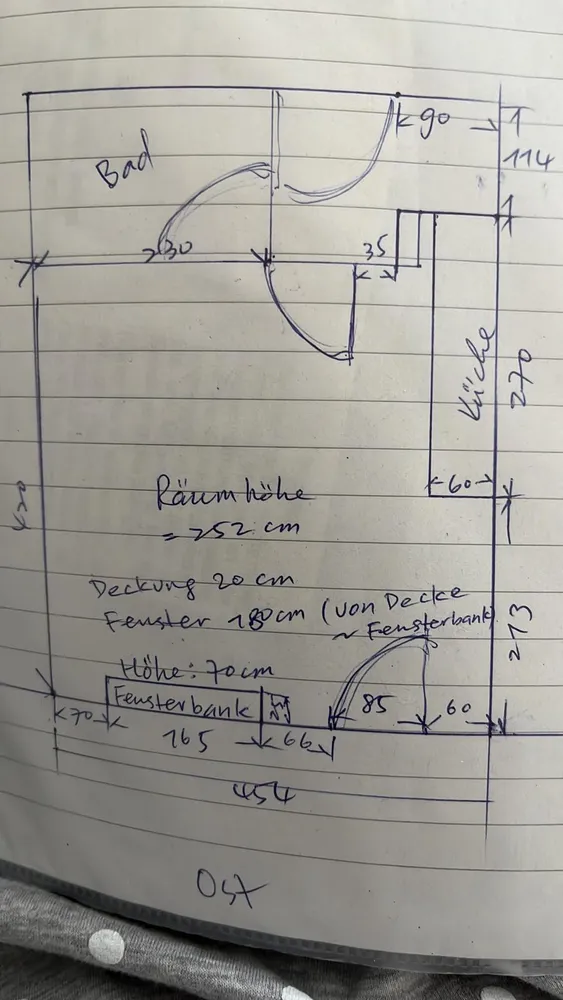 90
114
Bad
230
35
Küche
270
60
Räumhöhe
= 252 cm
Deckung 20 cm
Fenster 180cm (von Decke
~ Fensterbank)
213
Höhe: 70cm
Fensterbank
85
60
70
165
66
454
Ost